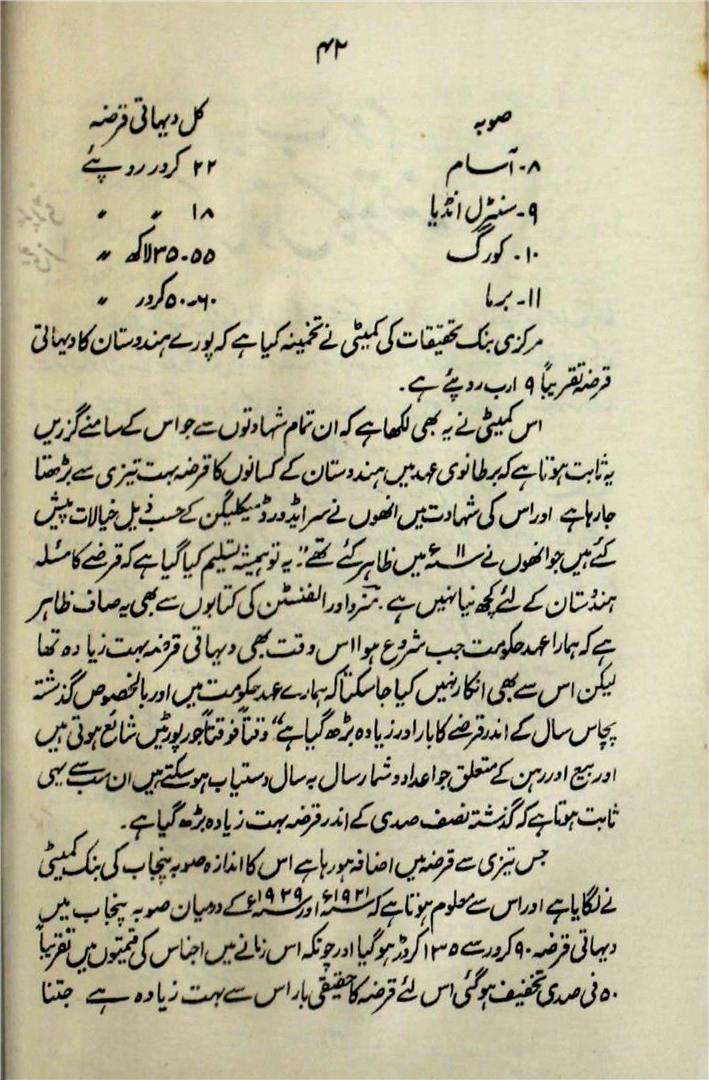 ۴۲
صوبہ کل دیہاتی قرضہ
۸۔ آسام ۲۲ کرور روپئے
۹۔ سنٹرل انڈیا ۱۸ 〃 〃
۱۰۔ کورگ ۵۵۔۳۵ لاکھ 〃
۱۱۔ برما ۶۰۔۵۰ کرور 〃
مرکزی بنک تحقیقات کی کمیٹی نے تخمینہ کیا ہے کہ پورے ہندوستان کا دیہاتی
قرضہ تقریباً ۹ ارب روپئے ہے۔
اس کمیٹی نے یہ بھی لکھا ہے کہ ان تمام شہادتوں سے جو اس کے سامنے گزریں
یہ ثابت ہوتا ہے کہ برطانوی عہد میں ہندوستان کے کسانوں کا قرضہ بہت تیزی سے بڑھتا
جا رہا ہے اور اس کی شہادت میں انھوں نے سر ایڈورڈ میکلیگن کے حسب ذیل خیالات پیش
کئے ہیں جو انھوں نے ۱۱ء میں ظاہر کئے تھے "یہ تو ہمیشہ تسلیم کیا گیا ہے کہ قرضے کا مسئلہ
ہندوستان کے لئے کچھ نیا نہیں ہے۔ منرو اور الفنسٹن کی کتابوں سے بھی یہ صاف ظاہر
ہے کہ ہمارا عہد حکومت جب شروع ہوا اس وقت بھی دیہاتی قرضہ بہت زیادہ تھا
لیکن اس سے بھی انکار نہیں کیا جا سکتا کہ ہمارے عہد حکومت میں اور بالخصوص گذشتہ
پچاس سال کے اندر قرضے کا بار اور زیادہ بڑھ گیا ہے" وقتاً فوقتاً جو رپورٹیں شائع ہوتی ہیں
اور بیع اور رہن کے متعلق جو اعداد و شمار سال بہ سال دستیاب ہو سکتے ہیں ان سب سے یہی
ثابت ہوتا ہے کہ گذشتہ نصف صدی کے اندر قرضہ بہت زیادہ بڑھ گیا ہے۔
جس تیزی سے قرضہ میں اضافہ ہو رہا ہے اس کا اندازہ صوبہ پنجاب کی بنک کمیٹی
نے لگایا ہے اور اس سے معلوم ہوتا ہے کہ ۱۹۲۱ء اور ۱۹۲۹ء کے درمیان صوبہ پنجاب میں
دیہاتی قرضہ ۹۰ کرور سے ۱۳۵ کروڑ ہو گیا اور چونکہ اس زمانے میں اجناس کی قیمتوں میں تقریباً
۵۰ فی صدی تخفیف ہو گئی اس لئے قرضہ کا حقیقی بار اس سے بہت زیادہ ہے جتنا